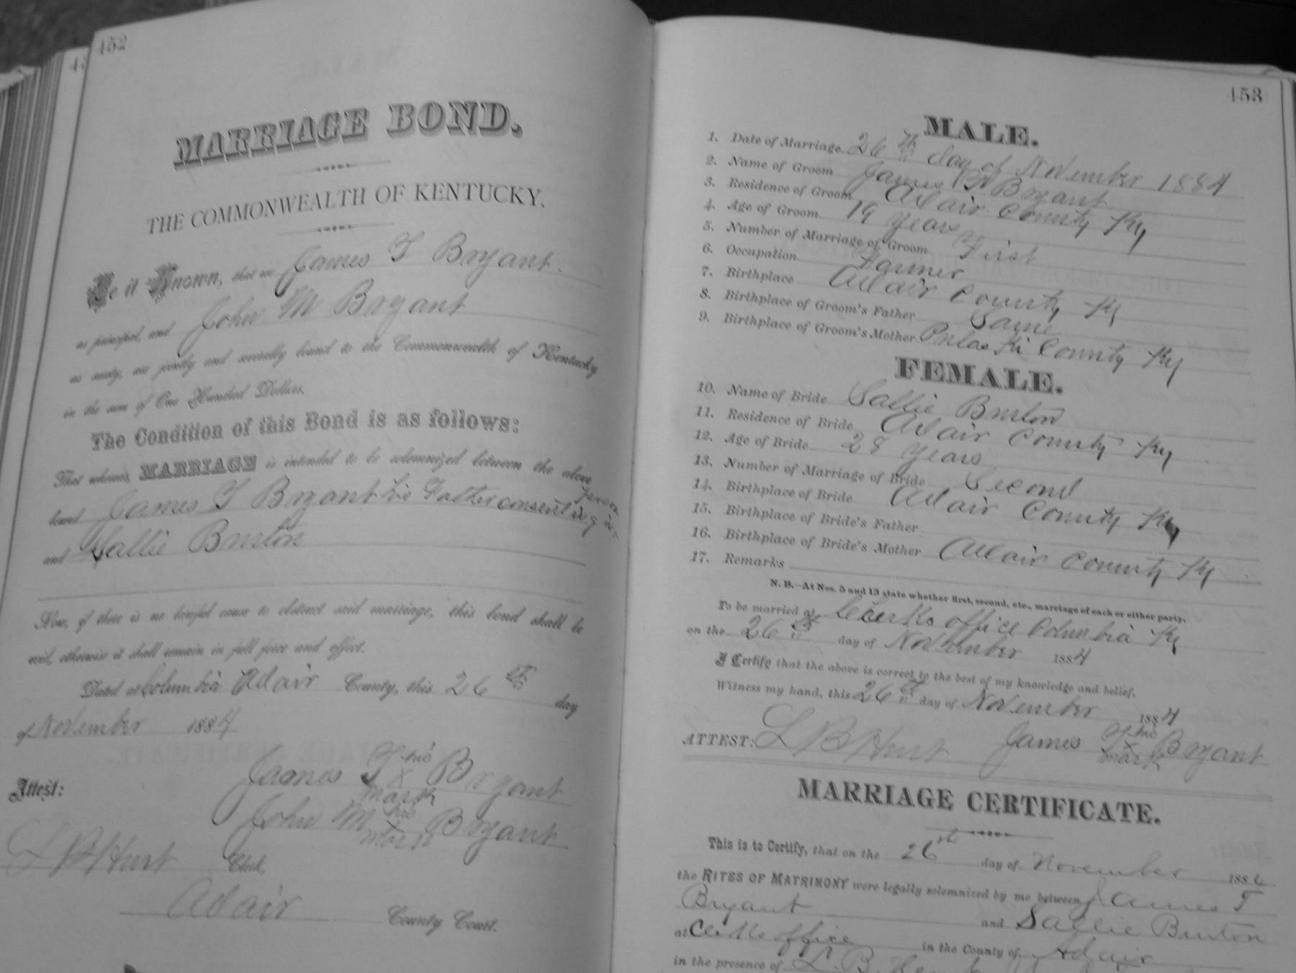 452
MARRIAGE BOND.
THE COMMONWEALTH OF KENTUCKY.
Be it Known, that we James T Bryant.
as principal, and John M Bryant
as surety, are jointly and severally bound to the Commonwealth of Kentucky
in the sum of One Hundred Dollars.
The Condition of this Bond is as follows:
That whereas, MARRIAGE is intended to be solemnized between the above
bound James T Bryant his Father consenting in person
and Sallie Burton
Now, if there is no lawful cause to obstruct said marriage, this bond shall be
void, otherwise it shall remain in full force and effect.
Dated at Columbia Adair County, this 26th day
of November 1884
James T his x mark Bryant
Attest: John M his x mark Bryant
L B Hurt Clerk,
Adair County Court.
453
MALE.
1. Date of Marriage 26th day of November 1884
2. Name of Groom James T Bryant
3. Residence of Groom Adair County Ky
4. Age of Groom 19 years
5. Number of Marriage of Groom First
6. Occupation Farmer
7. Birthplace Adair County Ky
8. Birthplace of Groom's Father Same
9. Birthplace of Groom's Mother Pulaski County Ky
FEMALE.
10. Name of Bride Sallie Burton
11. Residence of Bride Adair County Ky
12. Age of Bride 28 years
13. Number of Marriage of Bride Second
14. Birthplace of Bride Adair County Ky
15. Birthplace of Bride's Father
16. Birthplace of Bride's Mother Adair County Ky
17. Remarks
N. B.—At Nos. 5 and 13 state whether first, second, etc., marriage of each or either party.
To be married at Clerks office Columbia Ky
on the 26th day of November 1884
I Certify that the above is correct to the best of my knowledge and belief.
Witness my hand, this 26th day of November 1884
ATTEST: L B Hurt James T his x mark Bryant
MARRIAGE CERTIFICATE.
This is to Certify, that on the 26 day of November 188
the RITES OF MATRIMONY were legally solemnized by me between James T
Bryant and Sallie Burton
at Clerks office in the County of Adair
in the presence of L. B.